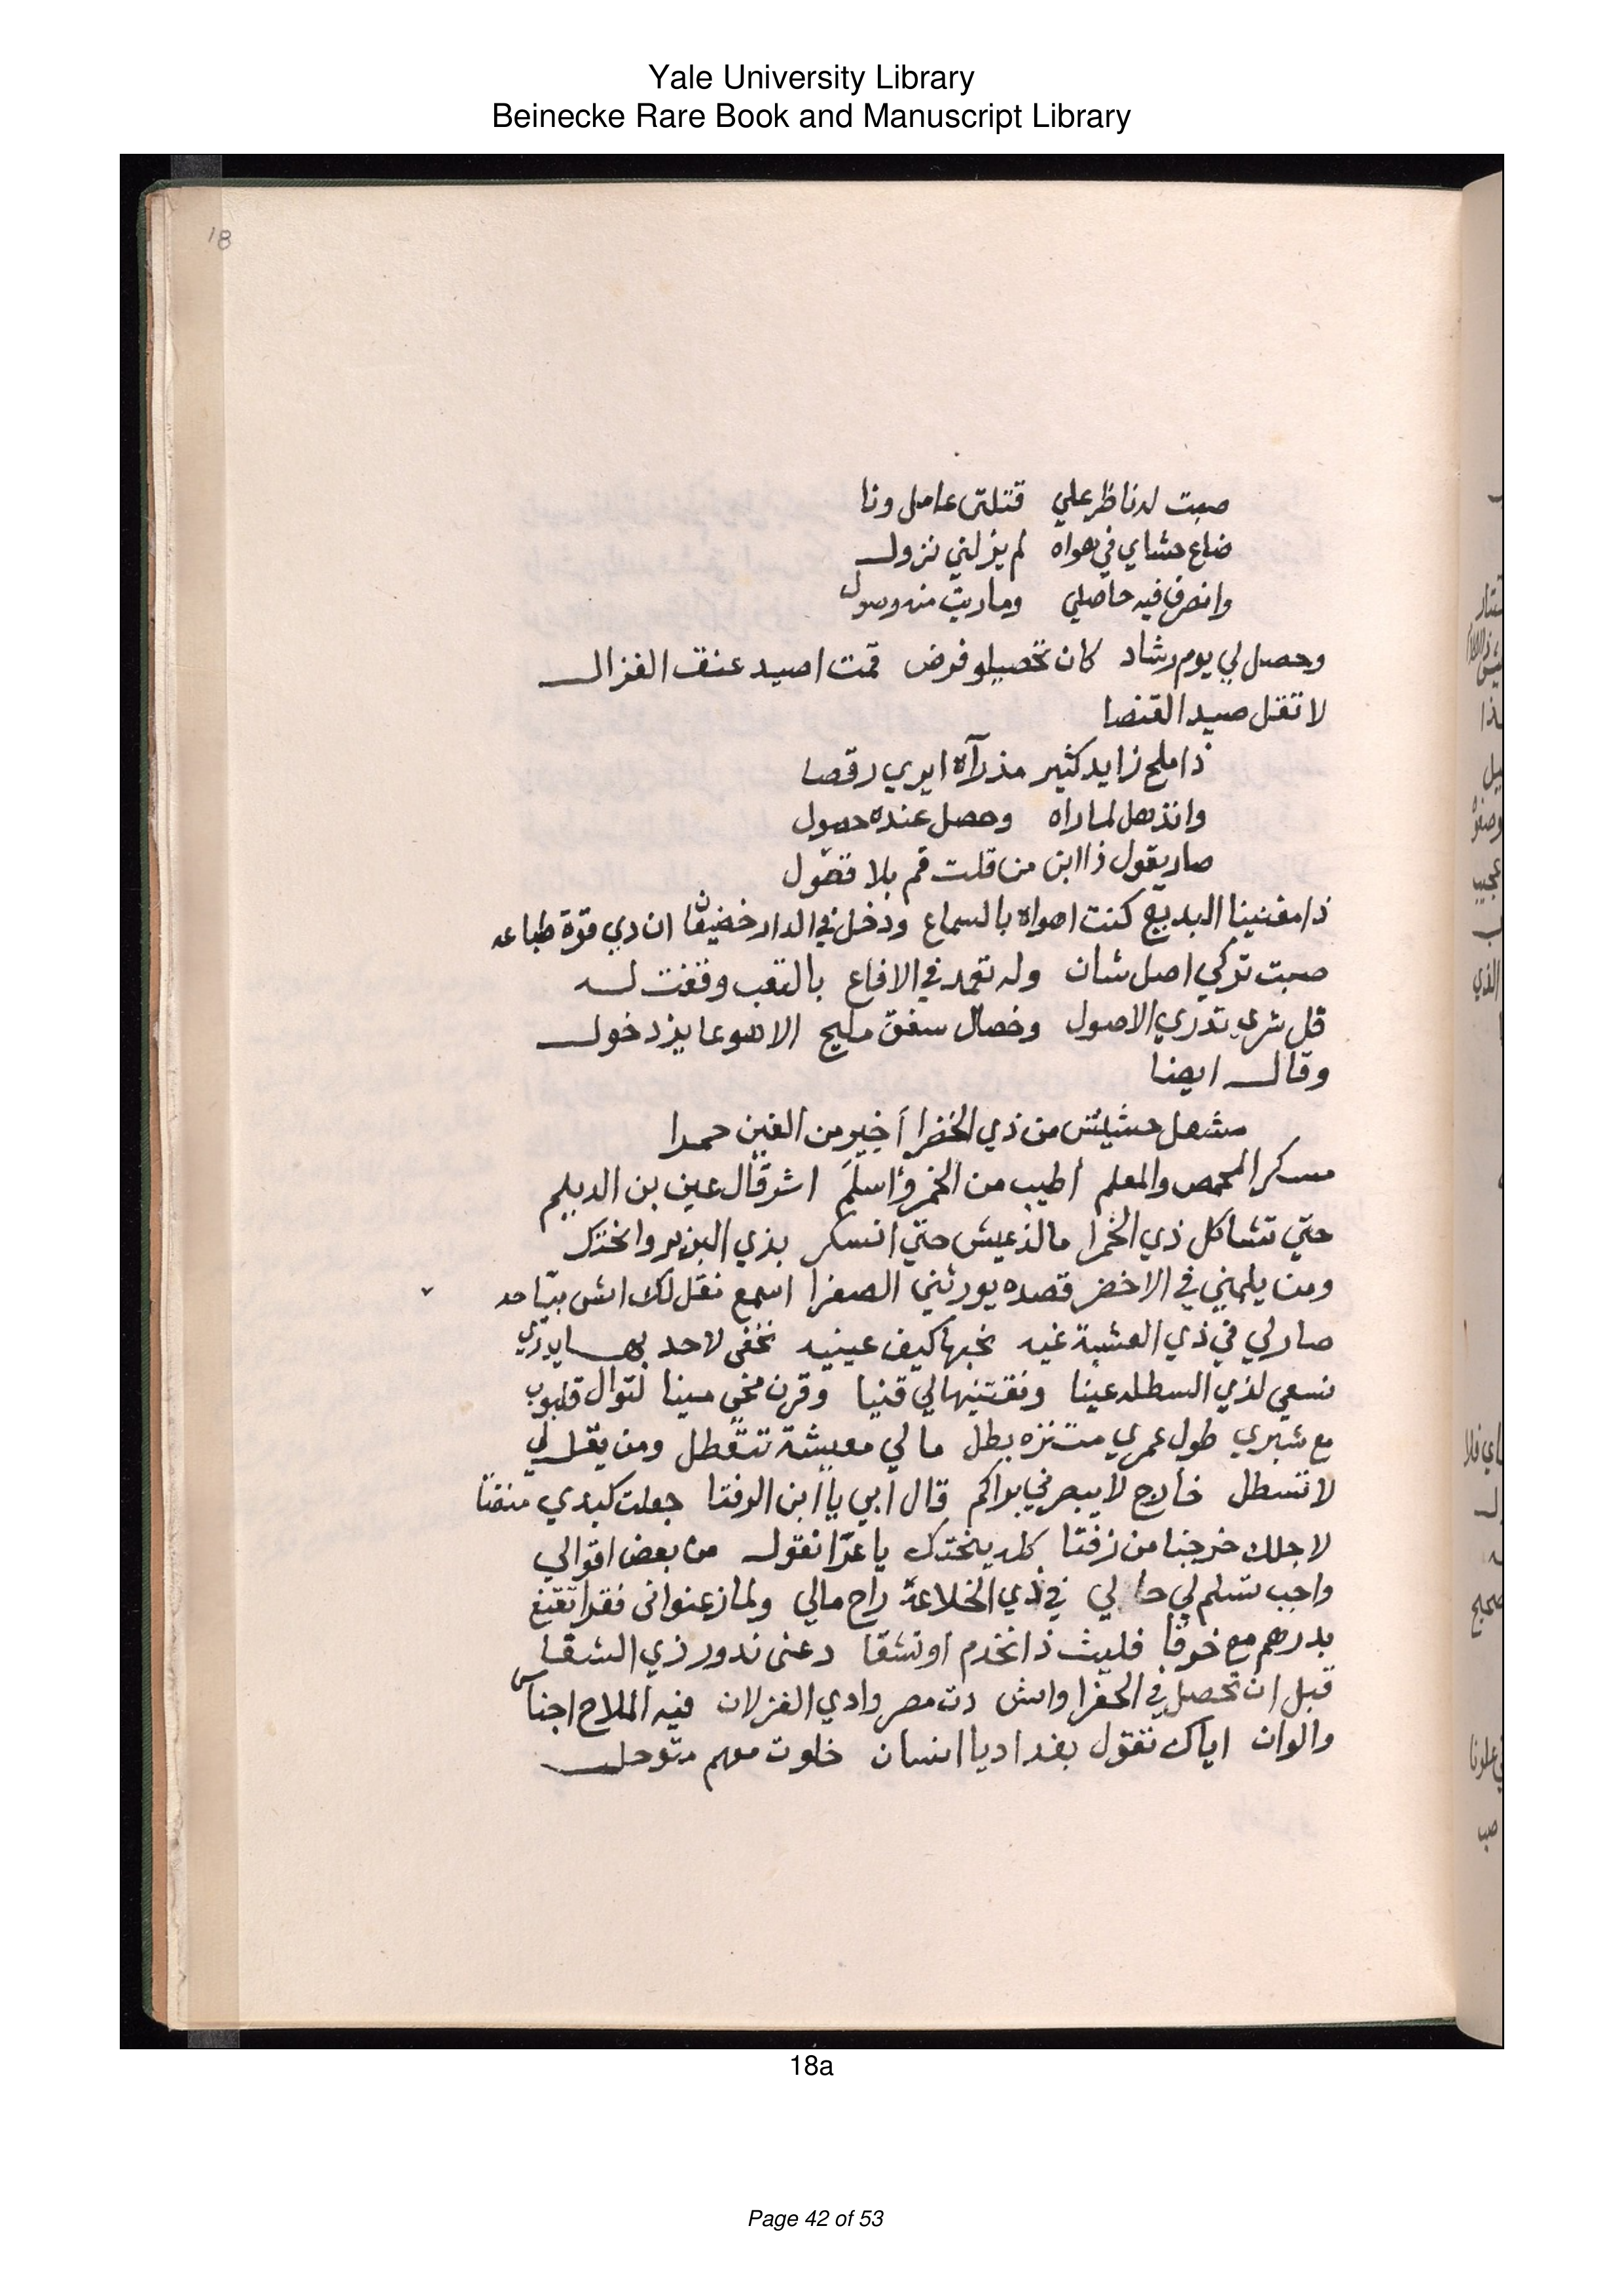 Yale University Library
Beinecke Rare Book and Manuscript Library
18
صبت له ناظر علي قتلتى عامل ونا
ضاع حشاي في هواه لم يزلني نزول
وانصرف فيه حاصلي وماريت منه وصول
وحصل لي يوم رشاد كان تحصيلو فرض قمت اصيد عنق الغزال
لا تقل صيد القنصا
ذا ملح زايد كثير مذ رآه ايري رقصا
وانذهل لما راه وحصل عنده حصول
صار يقول ذا ابن من قلت قم بلا فضول
ذا مغنينا البديع كنت اهواه بالسماع ودخل في الدار ان دي قوة طباعه
صبت تركي اصل شان وله تعمد في الاقاع بالتعب وقفت له
قل شرى تدري الاصول وخصال سفق مليح الا هو عايز دخول
وقال ايضا
مشعل حشيش من ذي الخضرا أخير من الفين حمرا
مسكر المحمص والمعلم أطيب من الخمر وأسلم اشر قال عين بن الديلم
حتي تشاكل ذي الخمرا مالذ عيش حتي انسكر بذي البزير وانختك
ومن يلمني في الاخضر قصده يورثني الصفرا اسمع نقل لك اش بتاحد
صار لي في ذي العشبة غيه نخبها كيف عينيه تخفى لاحد بها يدري
نسعي لذي السطله عينا ونقتنيها لي قنيا وقرن مخي مينا لتوال قليوب
مع شبري طول عمري متنزه بطل ما لي معيشة تتعطل ومن يقل لي
لا تسطل خارج لا يبصر في براكم قال أبي يا ابن الرفتا جعلت كبدي منفتا
لاجلك خرجنا من زفتا كله ينختك يا عرا نقول من بعض اقوالي
واجب تسلم لي حالي في ذي الخلاعة راح مالي ولما زعنوانى فقرا تقنع
بدرهم مع خوفا فليت ذا نخدم او نشقا دعنى ندور ذي الشقا
قبل ان تحصل في الحفرا واش دت مصر وادي الغزلان فيه الملاح اجناس
والوان اياك تقول بغداد يا انسان خلوت معهم متوحل
18a
Page 42 of 53